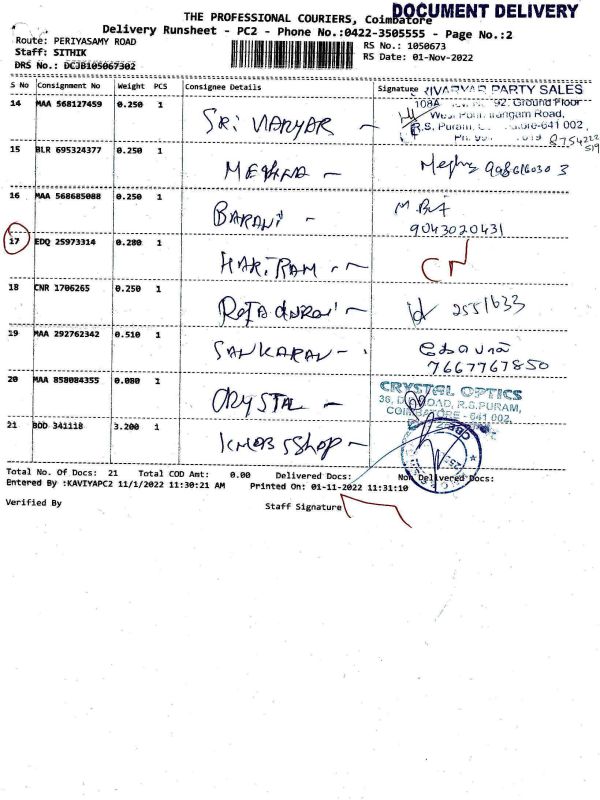 DOCUMENT DELIVERY
THE PROFESSIONAL COURIERS, Coimbatore
Delivery Runsheet - PC2 - Phone No.:0422-3505555 - Page No.:2
Route: PERIYASAMY ROAD RS No.: 1050673
Staff: SITHIK RS Date: 01-Nov-2022
DRS No.: DCJB105067302
S No Consignment No Weight PCS Consignee Details Signature
14 MAA 568127459 0.250 1 SRI VARYAR - RIVARYAR PARTY SALES
108A 92, Ground Floor
West
R.S. Puram, 641 002
Ph. 8754222519
15 BLR 695324377 0.250 1 MEGHNA - 9986160303
16 MAA 568685088 0.250 1 BARANI -
9043020431
17 EDQ 25973314 0.280 1 HARIRAM - CN
18 CNR 1706265 0.250 1 ROJADURAI - 2551633
19 MAA 292762342 0.510 1 SANKARAN -
7667767850
20 MAA 858084355 0.080 1 CRYSTAL - CRYSTAL OPTICS
36, ROAD, R.S.PURAM,
COIMBATORE - 641 002.
21 BOD 341118 3.200 1 KMOBSSHOP -
Total No. Of Docs: 21 Total COD Amt: 0.00 Delivered Docs: Non Delivered Docs:
Entered By :KAVIYAPC2 11/1/2022 11:30:21 AM Printed On: 01-11-2022 11:31:10
Verified By Staff Signature